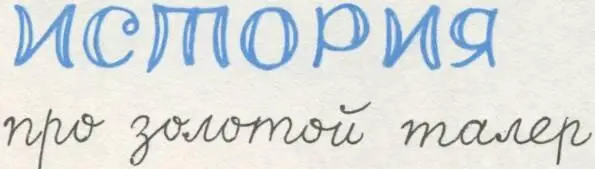 ИСТОРИЯ
про золотой талер